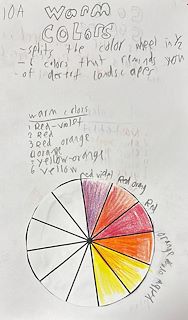 10A Warm
COLORS
- splits the color wheel in 1/2
- 6 colors that reminds you
- of desert landscapes
warm colors
1 Red-violet
2 Red
3 Red orange
4 orange
5 yellow-orange
6 yellow
red violet
Red orang
Red
orange